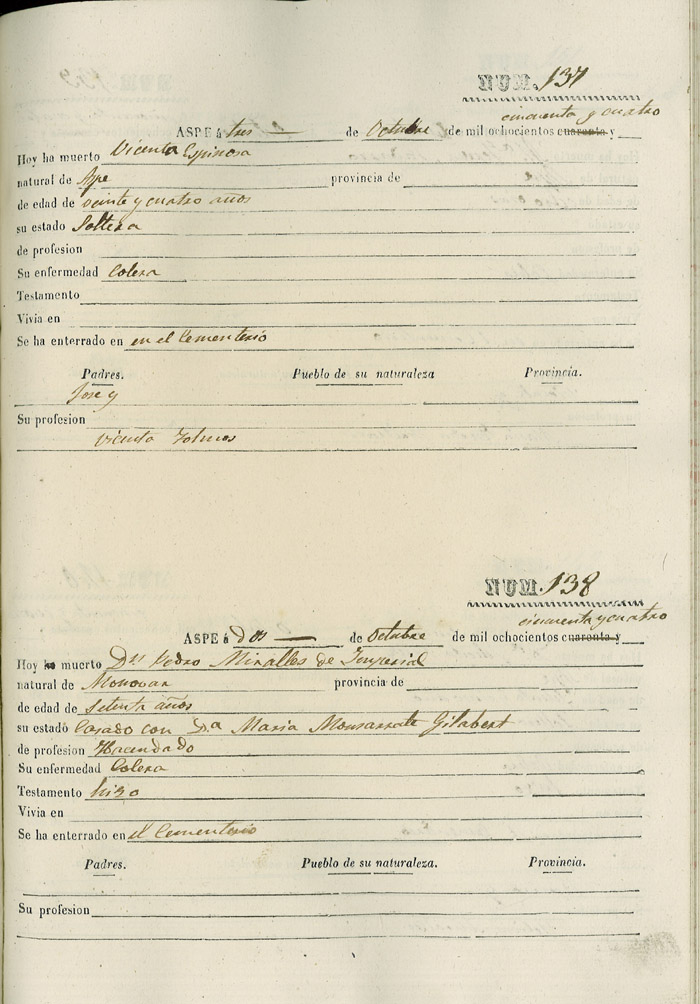 NUM. 137
cincuenta y cuatro
ASPE á tres de Octubre de mil ochocientos cuarenta y
Hoy ha muerto Vicenta Espinosa
natural de Aspe provincia de
de edad de veinte y cuatro años
su estado Soltera
de profesion
Su enfermedad Colera
Testamento
Vivia en
Se ha enterrado en en el Cementerio
Padres. Pueblo de su naturaleza Provincia.
Jose y
Su profesion
Vicenta
NUM. 138
cincuenta y cuatro
ASPE á dos de Octubre de mil ochocientos cuarenta y
Hoy ha muerto Dn. Pedro Miralles de Imperial
natural de Monovar provincia de
de edad de setenta años
su estado Casado con Da. Maria Monsarrate Gilabert
de profesion Hacendado
Su enfermedad Colera
Testamento hizo
Vivia en
Se ha enterrado en el Cementerio
Padres. Pueblo de su naturaleza. Provincia.
Su profesion